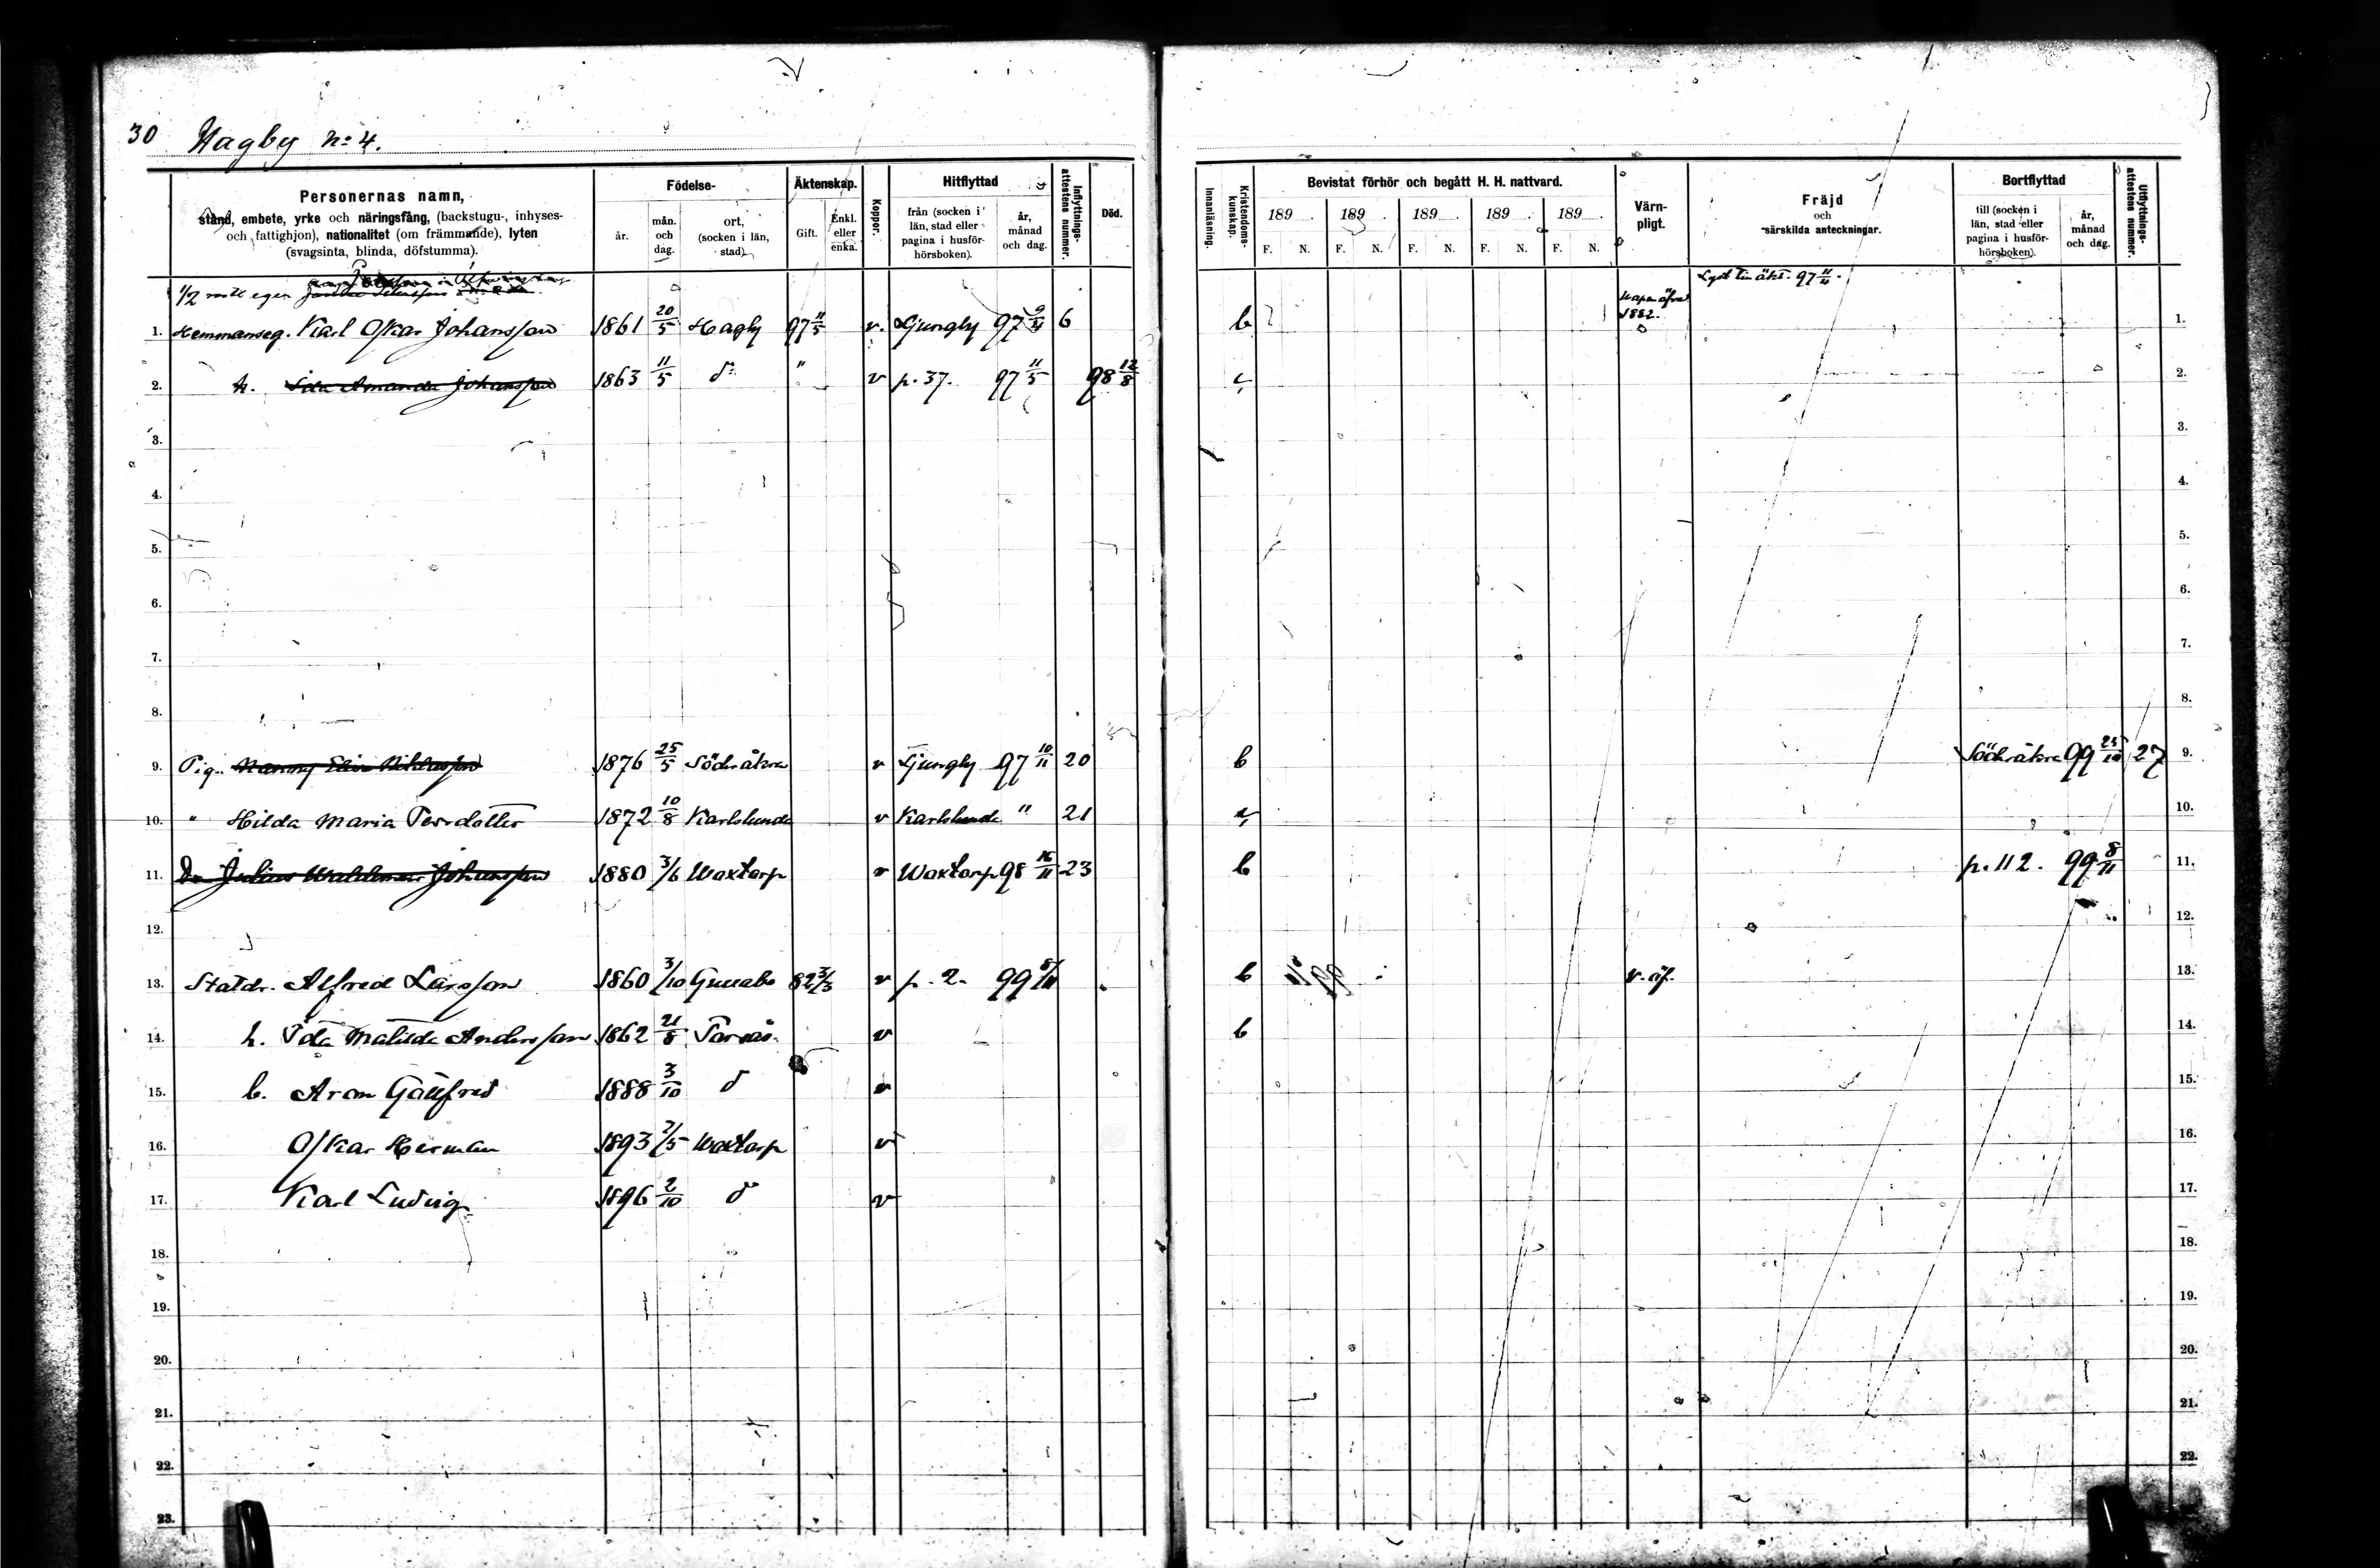 30 Hagby No 4.
Personernas namn,
stånd, embete, yrke och näringsfång, (backstugu-, inhyses-
och fattighjon), nationalitet (om främmande), lyten
(svagsinta, blinda, döfstumma).
Födelse-
år.
mån. och dag.
ort, (socken i län, stad)
Äktenskap.
Gift.
Enkl. eller enka.
Koppor.
Hitflyttad
från (socken i län, stad eller pagina i husförhörsboken).
år, månad och dag.
Inflyttnings-attestens nummer.
Död.
Innanläsning.
Kristendoms-kunskap.
Bevistat förhör och begått H. H. nattvard.
189 189 189 189 189
F. N. F. N. F. N. F. N. F. N.
Värn-pligt.
Fräjd
och
särskilda anteckningar.
Bortflyttad
till (socken i län, stad eller pagina i husförhörsboken).
år, månad och dag.
Utflyttnings-attestens nummer.
1/2 mtl eger
Lyst till äkt. 97 11/4.
1882.
1. Hemmanseg. Karl Oskar Johansson 1861 20/5 Hagby 97 11/5 v. Ljungby 97 6 b 1.
2. h. Ida Amanda Johansson 1863 11/5 do " v p. 37. 97 11/5 98 12/8 2.
3. 3.
4. 4.
5. 5.
6. 6.
7. 7.
8. 8.
9. Pig. Nanny Elin 1876 25/5 Söderåkra v Ljungby 97 10/11 20 b Söderåkra 99 25/10 27 9.
10. " Hilda Maria Persdotter 1872 10/8 Karlslunda v Karlslunda " 21 10.
11. Dr Julius Waldemar Johansson 1880 3/6 Woxtorp v Woxtorp 98 16/11 23 b p. 112. 99 8/11 11.
12. 12.
13. Statdr. Alfred Larsson 1860 3/10 Gunabo 82 3/3 v p. 2. 99 8/11 b v. öf. 13.
14. h. Ida Matilda Andersson 1862 21/8 Torsås v b 14.
15. b. Aron Gottfrid 1888 3/10 d v 15.
16. Oskar Herman 1893 7/5 Woxtorp v 16.
17. Karl Ludvig 1896 2/10 d v 17.
18. 18.
19. 19.
20. 20.
21. 21.
22. 22.
23.